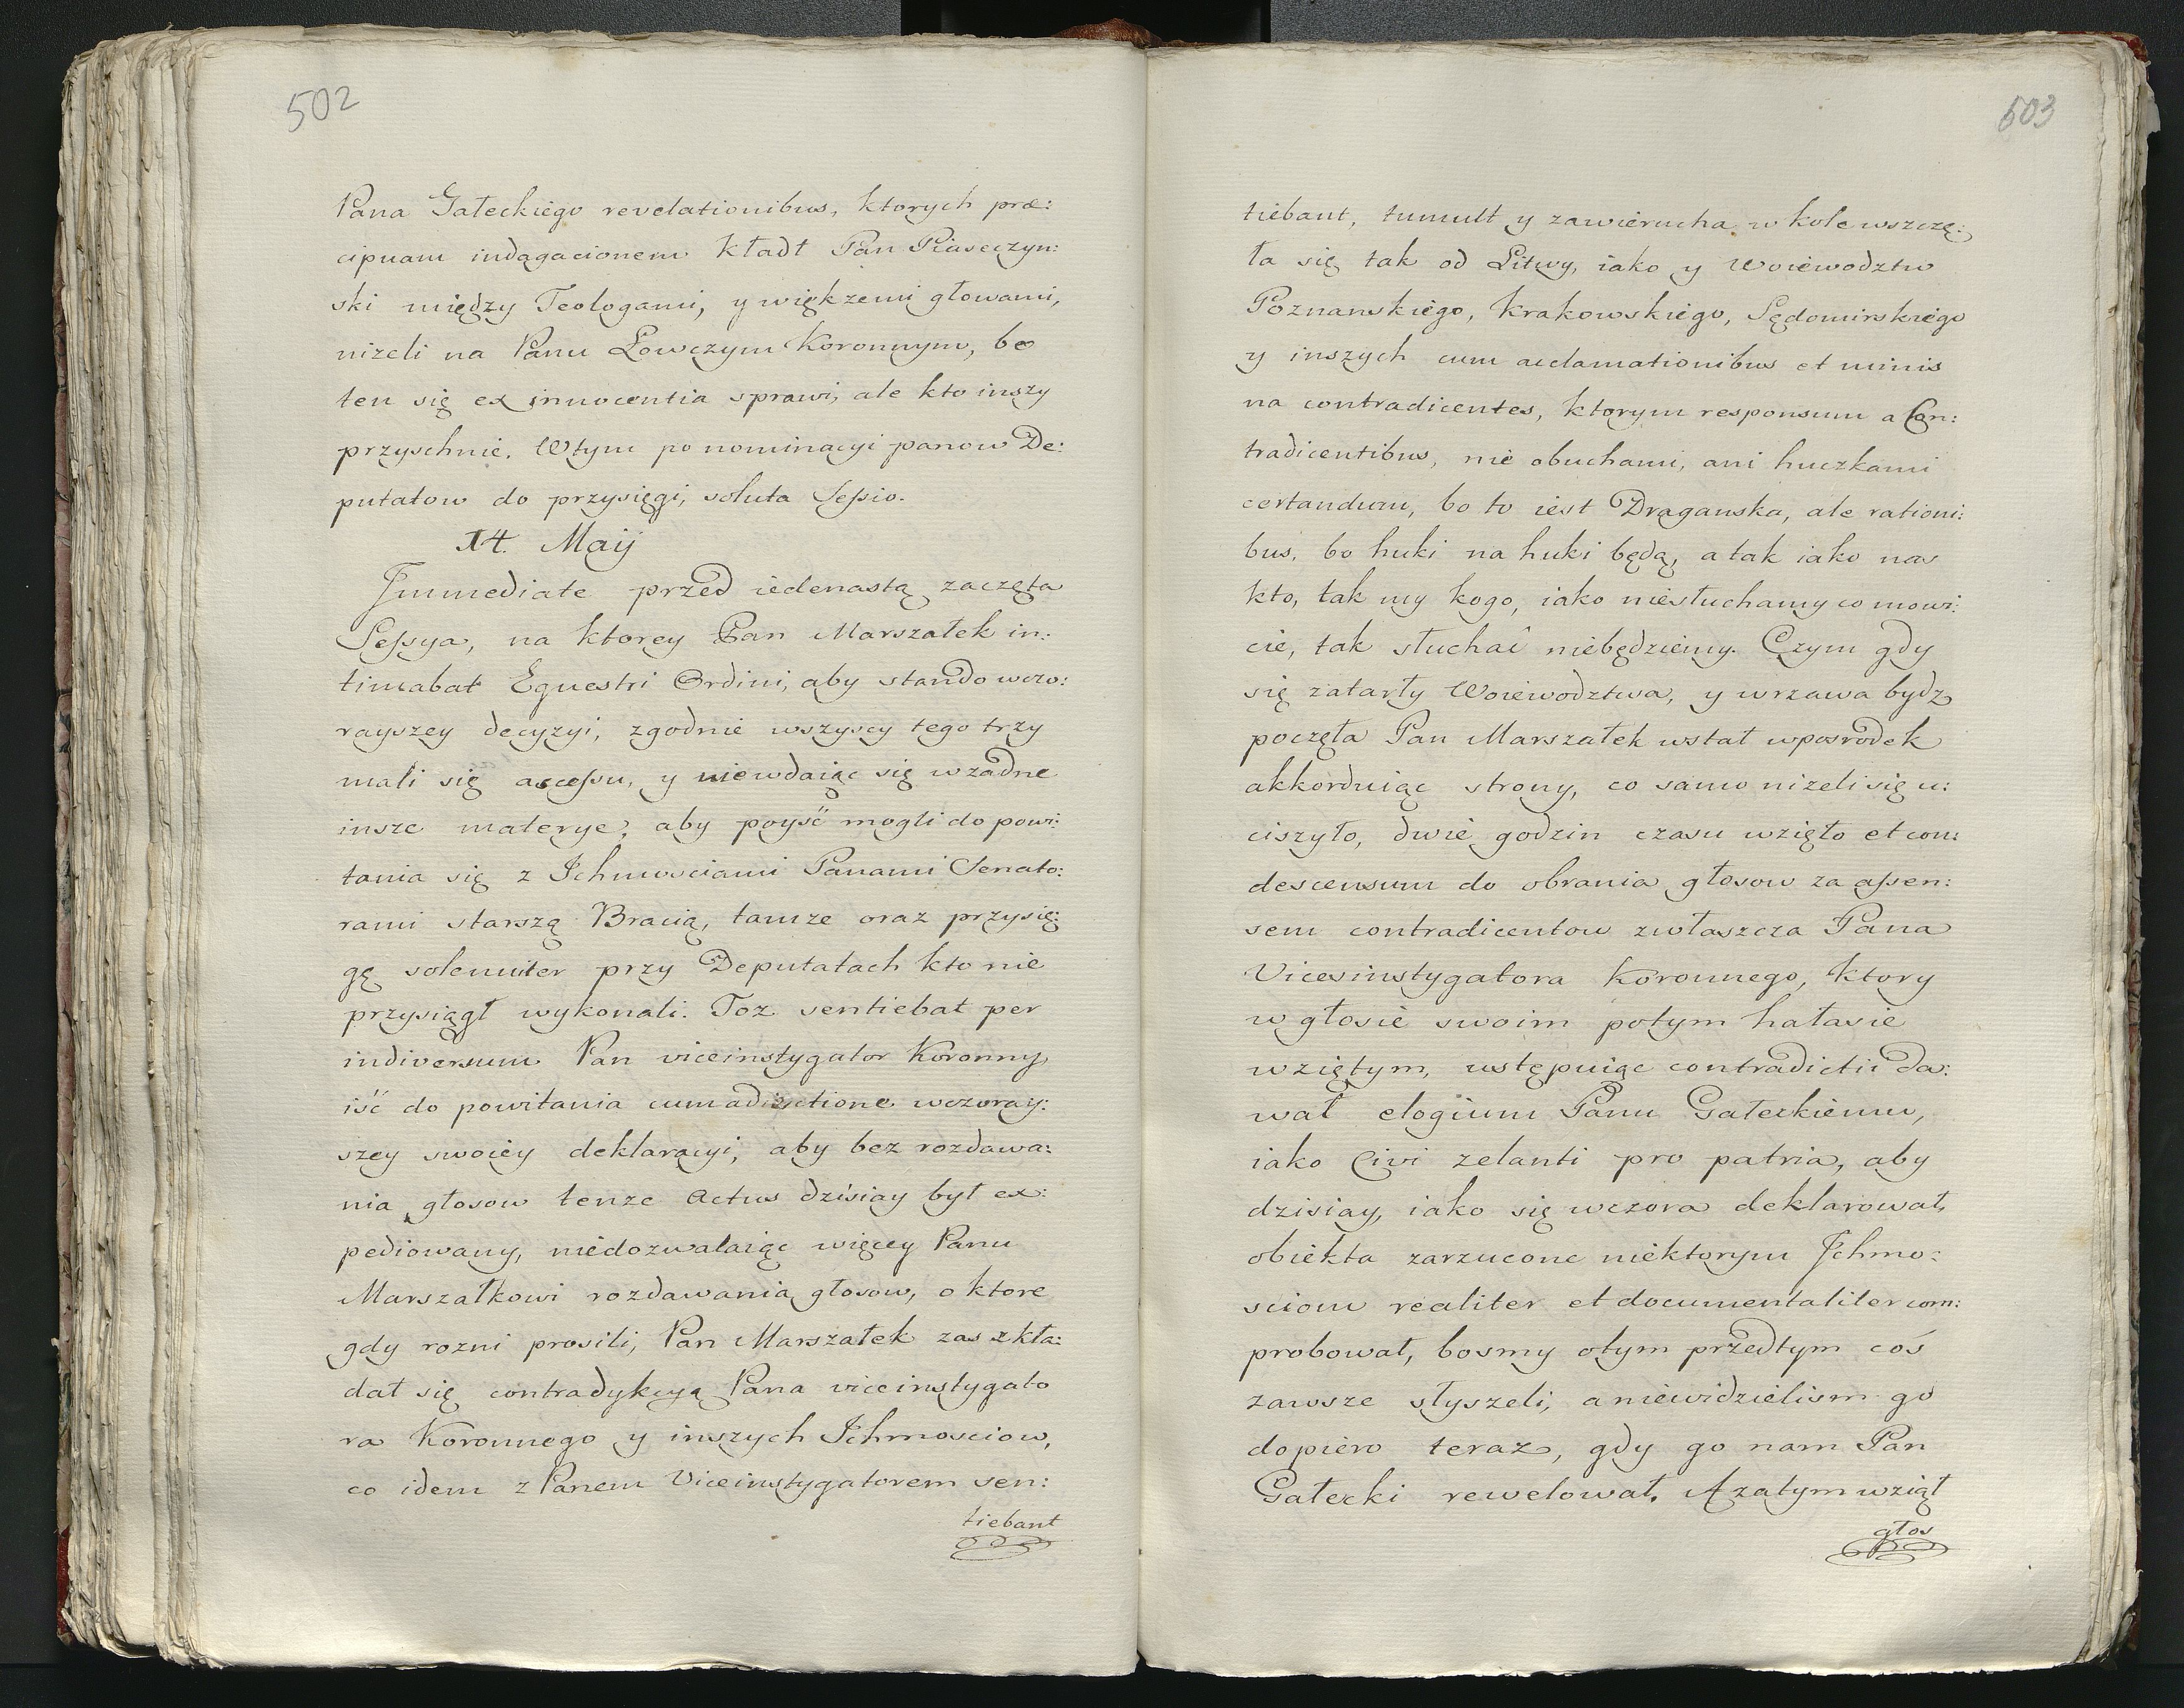 502
Pana Gałeckiego revelationibus, ktorych præ:
cipuam indagacionem kładł Pan Piaseczyn:
ski między Teologami, y więkzemi głowami,
niżeli na Panu Łowczym Koronnym, bo
ten się ex innocentia sprawi, ale kto inszy
przyschnie. Wtym po nominacyi panow De:
putatow do przysięgi, soluta Sessio.
14. Maij
Immediate przed iedenastą zaczęta
Sessya, na ktorey Pan Marszałek in:
timabat Equestri Ordini, aby stando wczo:
rayszey decyzyi, zgodnie wszyscy tego trzy
mali się accessu, y niewdaiąc się wzadne
insze materye, aby poyść mogli do powi:
tania się z Ichmosciami Panami Senato:
rami starszą Bracią, tamze oraz przysię:
gę solenniter przy Deputatach kto nie
przysiągł wykonali. Toz sentiebat per
indiversum Pan viceinstygator Koronny
iść do powitania cum adiunctione wczoray:
szey swoiey deklaracyi, aby bez rozdawa:
nia głosow tenze Actus dzisiay był ex:
pediowany, niedozwalaiąc więcey Panu
Marszałkowi rozdawania głosow, o ktore
gdy rozni prosili, Pan Marszałek zas zkła:
dał się contradykcyą Pana viceinstygato
ra Koronnego y inszych Ichmosciow,
co idem z Panem Viceinstygatorem sen:
tiebant
503
tiebant, tumult y zawierucha w kole wszczę:
ła się tak od Litwy, iako y Woiewodztw
Poznanskiego, Krakowskiego, Sędomirskiego
y inszych cum acclamationibus et minis
na contradicentes, ktorym responsum a Con:
tradicentibus, nie obuchami, ani huczkami
certandum, bo to iest Draganska, ale rationi:
bus, bo huki na huki będą, a tak iako nas
kto, tak my kogo, iako niesłuchamy co mowi:
cie, tak słuchać niebędziemy. Czym gdy
się zatarły Woiewodztwa, y wrzawa bydz
poczęła Pan Marszałek wstał wposrodek
akkorduiąc strony, co samo nizeli się u:
ciszyło, dwie godzin czasu wzięło et con:
descensum do obrania głosow za assen:
sem contradicentow zwłaszcza Pana
Vicesinstygatora Koronnego, ktory
w głosie swoim potym hałasie
wziętym, ustępuiąc contradictii da:
wał elogium Panu Gałeckiemu,
iako Civi zelanti pro patria, aby
dzisiay, iako się wczora deklarował,
obiekta zarzucone niektorym Ichmo:
sciom realiter et documentaliter com:
probował, bosmy otym przedtym coś
zawsze słyszeli, a niewidzielism go
dopiero teraz, gdy go nam Pan
Gałecki rewelował. A zatym wziął
głos